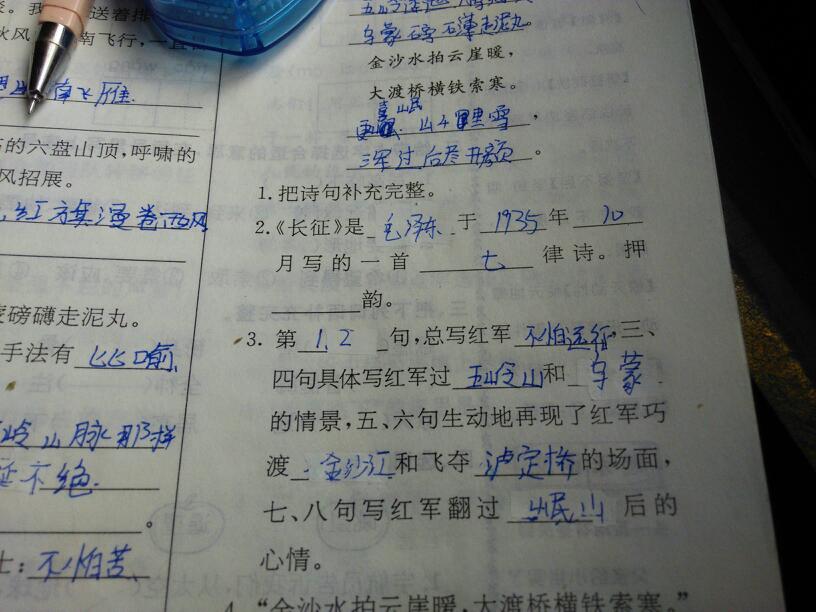 送着排
火风 南飞行,一直
南飞雁
的六盘山顶,呼啸的
风招展。
红旗漫卷西风
磅礴走泥丸。
手法有 比喻
岭山脉那样
延不绝
。
:不怕苦
乌蒙磅礴走泥丸。
金沙水拍云崖暖,
大渡桥横铁索寒。
更喜岷山千里雪,
三军过后尽开颜。
1.把诗句补充完整。
2.《长征》是 毛泽东 于 1935 年 10
月写的一首 七 律诗。押
韵。
3. 第 1、2 句,总写红军 不怕远征,三、
四句具体写红军过 五岭山 和 乌蒙
的情景,五、六句生动地再现了红军巧
渡 金沙江 和飞夺 泸定桥 的场面,
七、八句写红军翻过 岷山 后的
心情。
4. “金沙水拍云崖暖,大渡桥横铁索寒。”